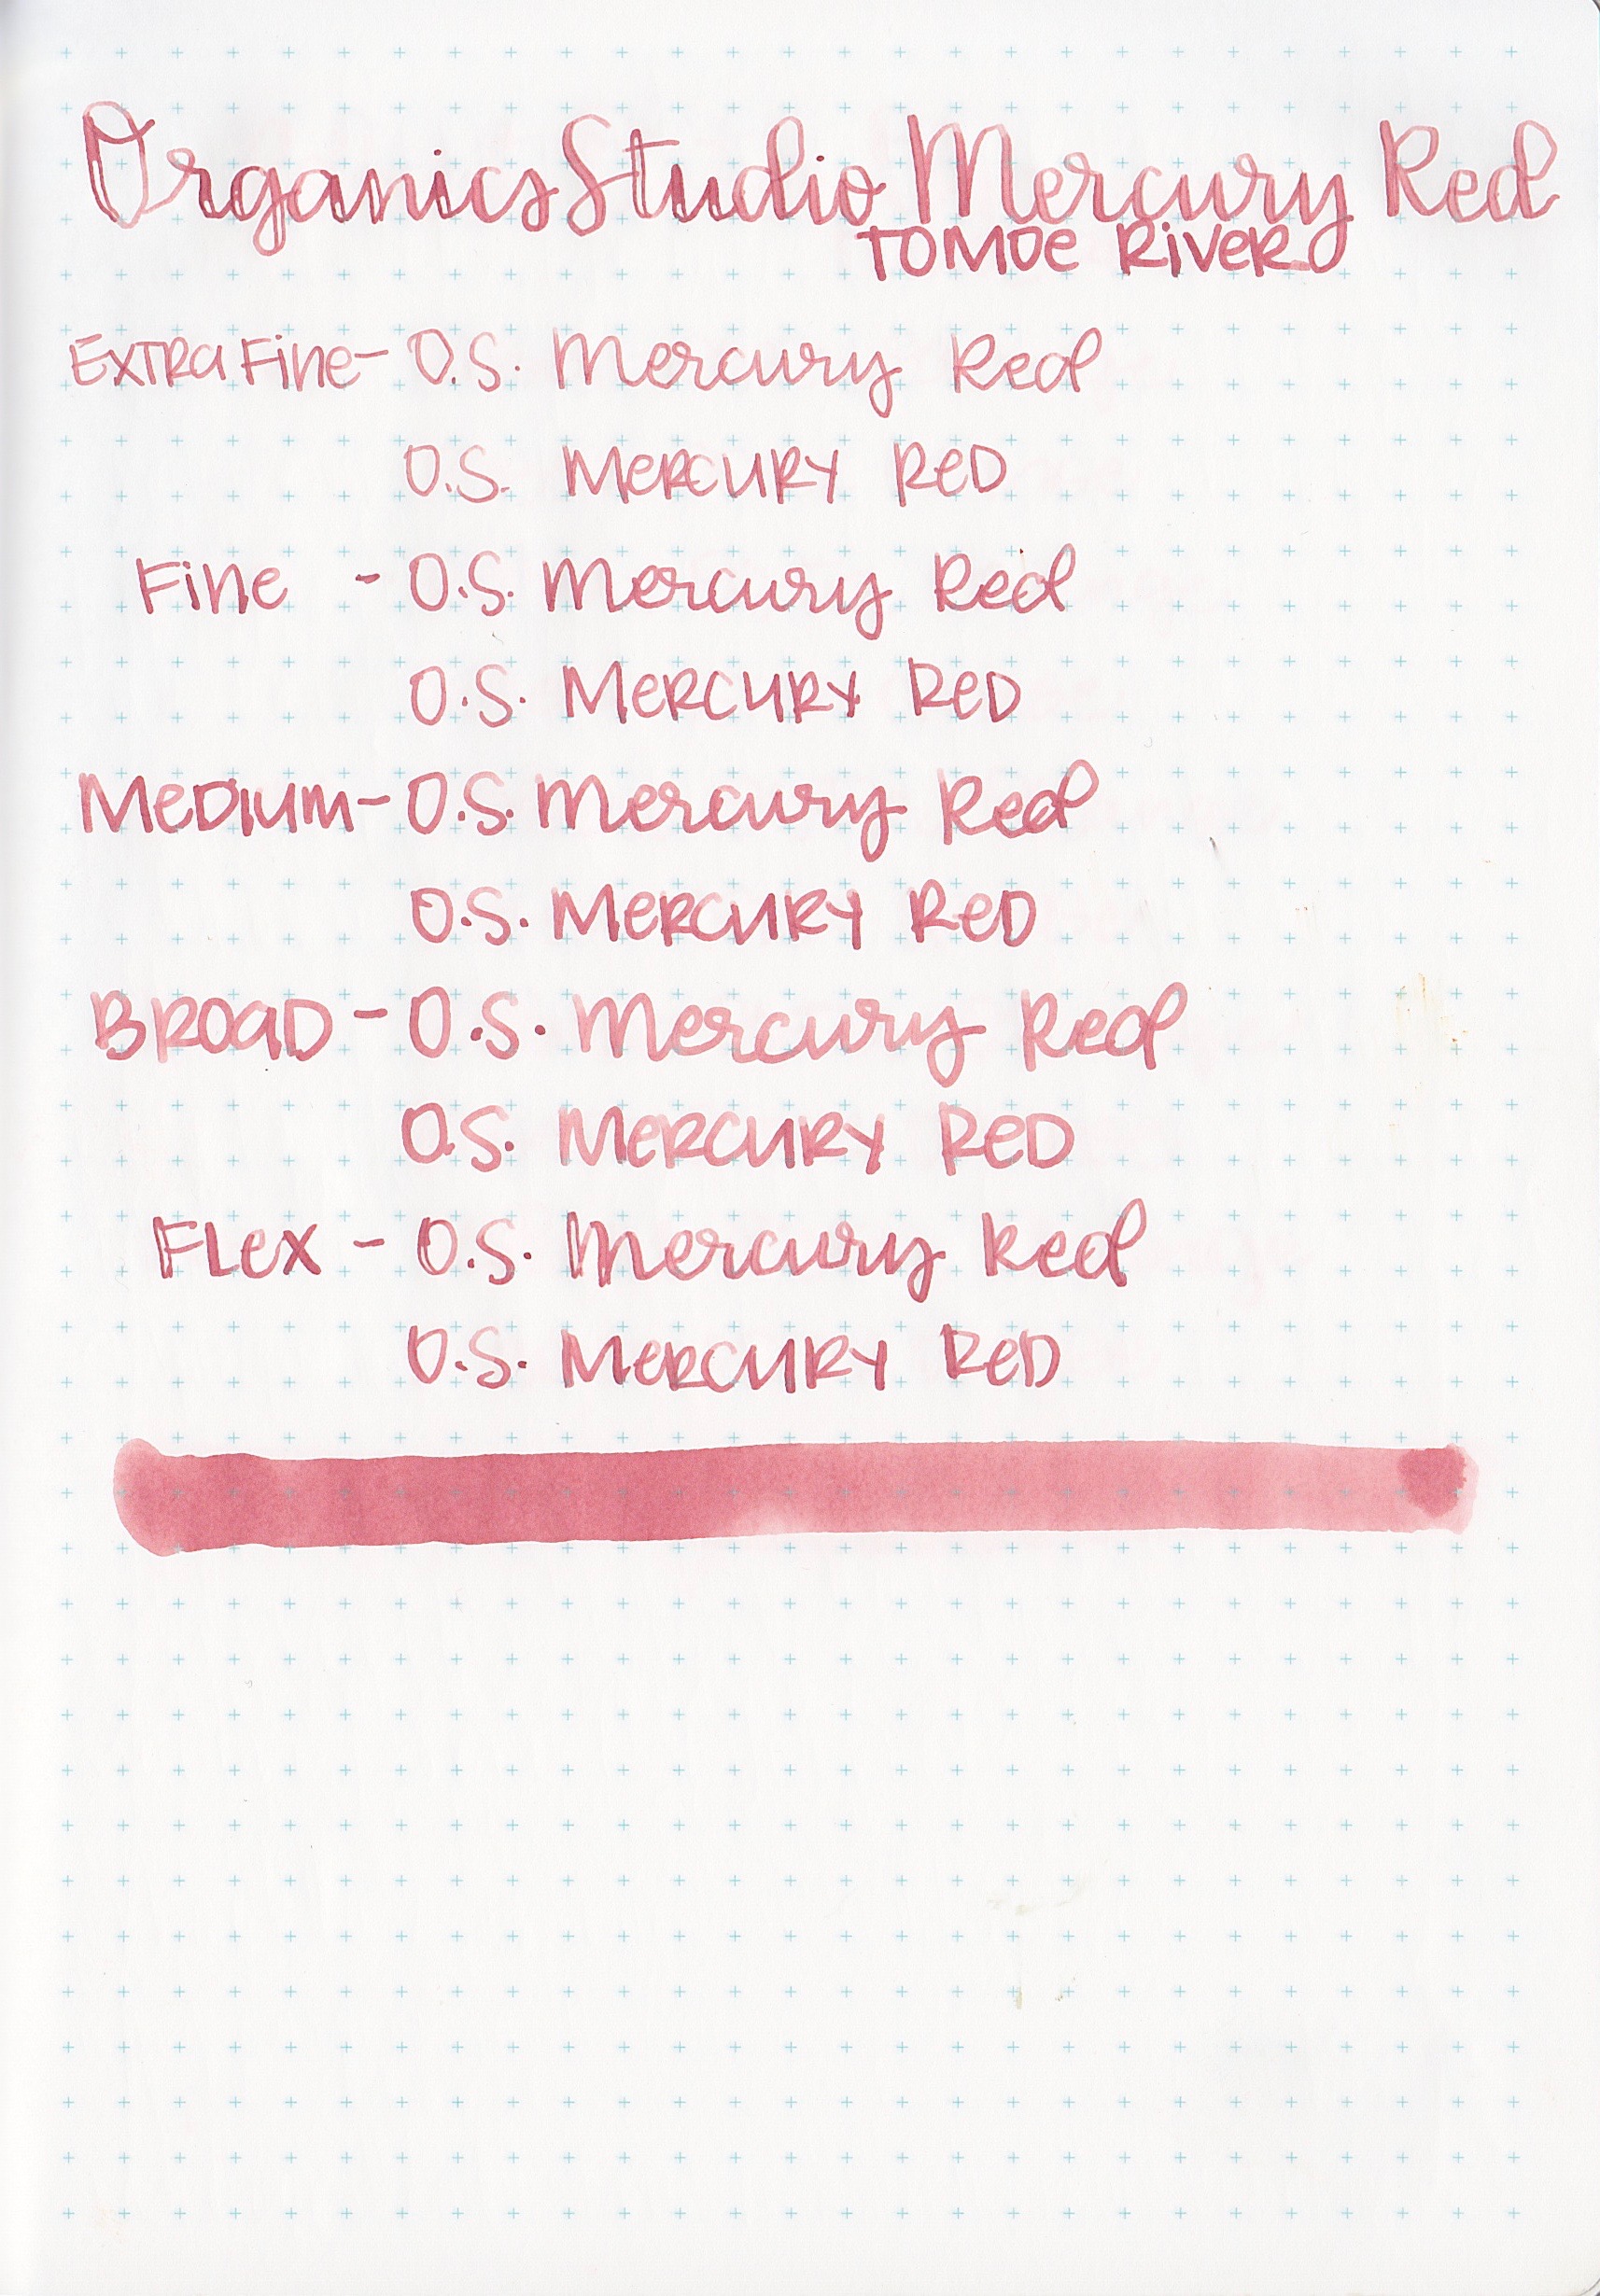 Organics Studio Mercury Red
TOMOE RIVER
EXTRA FINE - O.S. Mercury Red
O.S. MERCURY RED
FINE - O.S. Mercury Red
O.S. MERCURY RED
MEDIUM - O.S. Mercury Red
O.S. MERCURY RED
BROAD - O.S. Mercury Red
O.S. MERCURY RED
FLEX - O.S. Mercury Red
O.S. MERCURY RED